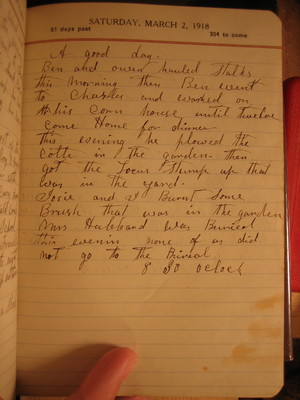 SATURDAY, MARCH 2, 1918
61 days past 304 to come
A good day.
Ben and owen hauled Stalks
this morning then Ben went
to Charles and worked on
his Corn house until twelve
come Home for dinner
this evening he plowed the
in the garden then
got the Locus Stump up that
was in the yard.
Josie and I Burnt Some
Brush that was in the garden
Mrs Hubband was Buried
this evenin none of us did
not go to the Burial
8 30 oclock